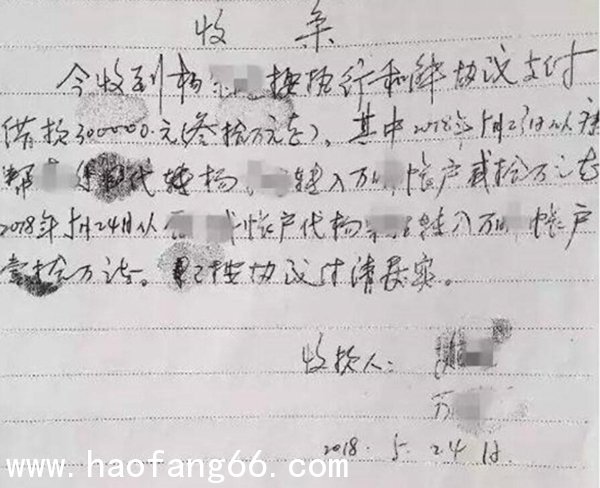 收条
今收到杨 按执行和解协议支付
借款300000.元(叁拾万元整)。其中2018年5月23日从
帮 代转杨 转入万 帐户贰拾万元整
2018年5月24日从 帐户代杨 转入万 帐户
壹拾万元。已按协议付清属实。
收款人:
万
2018.5.24日
www.haofang66.com